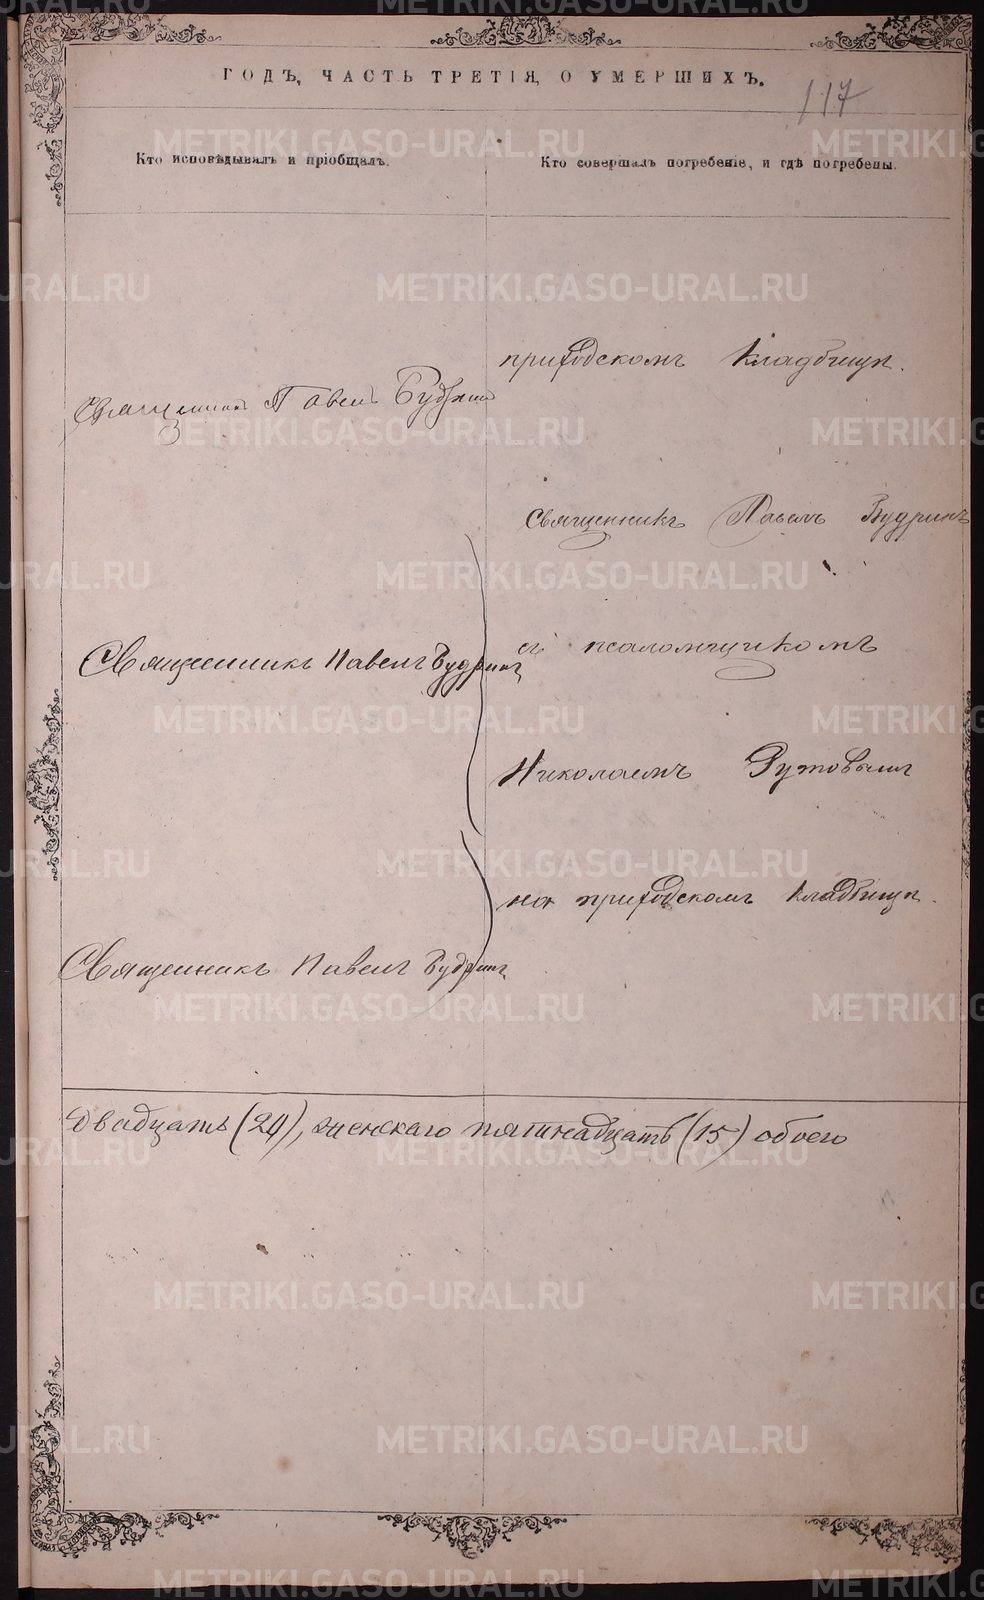 ГОДЪ, ЧАСТЬ ТРЕТІЯ, О УМЕРШИХЪ.
117
Кто исповѣдывалъ и пріобщалъ.
Кто совершалъ погребеніе, и гдѣ погребены.
приходскомъ кладбищѣ.
Священникъ Павелъ Будринъ
Священникъ Павелъ Будринъ
съ псаломщикомъ
Священникъ Павелъ Будринъ
Николаемъ
на приходскомъ кладбищѣ.
Священникъ Павелъ Будринъ
двадцать (20), женскаго пятнадцать (15) обоего
METRIKI.GASO-URAL.RU